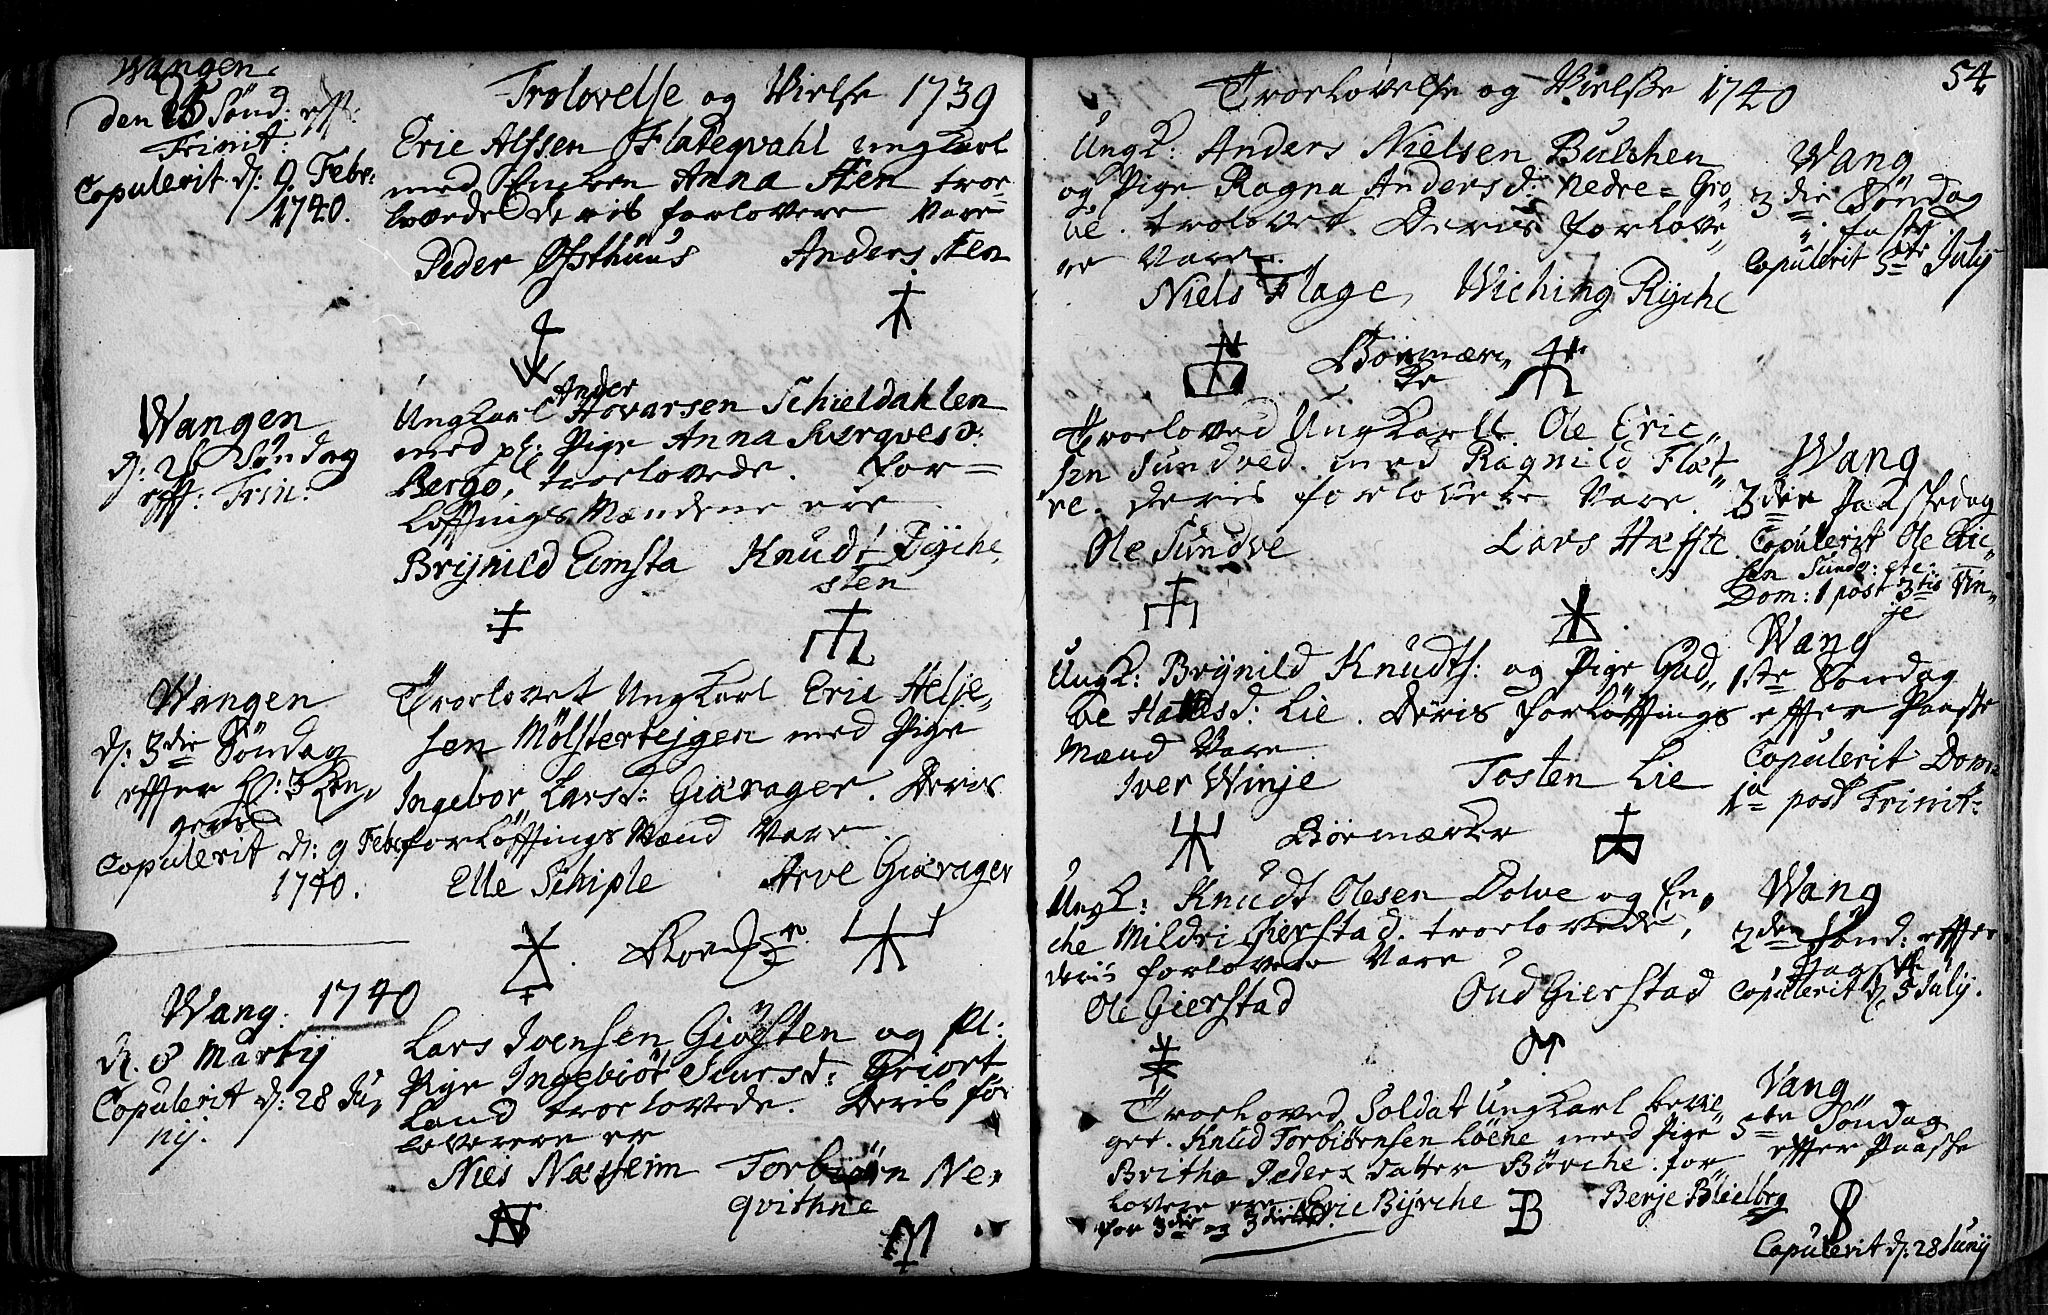 Wangen.
den 25 Sönd: eff:
Trinit:
Copulerit d: 9. Febr:
1740.
Trolovelse og Vielse 1739
Eric Alfsen Flateqvahl ungkarl
med Encken Anna Flen troe=
lovede deris forlovere Vare
Peder Østhuus Anders Flen
Wangen
d: 26 Söndag
eff: Trin:
Ander
Ungkarl Hovarsen Schieldahlen
med pl: Pige Anna Siurgvesd:
Bergo, troelovede. for=
löffnings Mændene ere
Brijnild Eimsta Knud Dijche,
sten
Wangen
d: 3die Söndag
effter H: 3 Kon,
gers
Copulerit d: 9 Febr:
1740.
Troelovet Ungkarl Eric Helje,
sen Mölstertejgen med Pige
Ingebor Larsd: Giærager. Deris
forlöffnings Mænd Vare.
Elle Schiple Arve Giærager
Wang: 1740
d. 8 Martij
Copulerit d: 28 Ju,
nij.
Lars Ivensen Giösten og Pl:
Pige Ingebiör Siursd: Griort
land troelovede. Deris for
loverere er
Niels Næsheim Torbiörn Ne,
qvithne
54
Troelovelse og Vielse 1740
Ungk: Anders Nielsen Bulchen
og Pige Ragna Andersd: nedre = Gro,
ve. trolovet. Deris forlove,
re Vare.
Niels Flage, Wiching Rijche
Wang
3die Söndag
i faste
Copulerit 5te Julij
Boemær,
ke
Troeloved Ungkarll. Ole Eric,
sen Sundved. med Ragnild Flat,
re. deris forlovere Vare.
Ole Sundve Lars Hæffte
Wang
3die Paaskedag
Copulerit Ole Eric,
sen Sundv: etc.
Dom: 1 post 3tis Vin,
je
Ungk: Brijnild Knudts: og Pige Gud,
ve Hallesd: Lie. Deris forlöffnings
Mænd Vare
Iver Winje Tosten Lie
Wang
1ste Söndag
effter Paaske
Copulerit Dom:
1a post Trinit:
Böemærker
Ungk: Knudt Olesen Dolve og En,
che Mildri Gierstad. troelovede,
deris forlovere Vare
Ole Gierstad Oud Gierstad
Wang
2den Sönd: effter
Paaske
Copulerit d. 5 Julij.
Troeloved Soldat Ungkarl
get. Knud Torbiörnsen Löene med Pige
Britha Peders Datter Börche. for,
lovere ere Eric Bijrche B Berje Blielbrg
for 3die og 3die
Vang
5te Söndag
effter Paaske
Copulerit d: 28 Junij